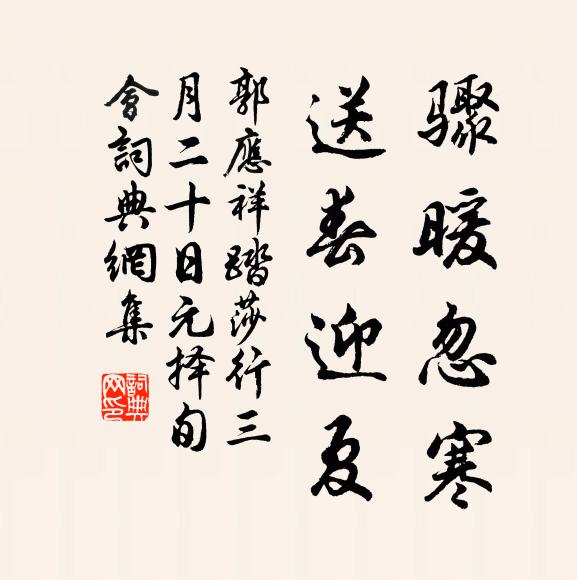 骤暖忽寒
送春迎夏
郭應祥踏莎行三
月二十日元择旬
會詞典網集
詞典
网印